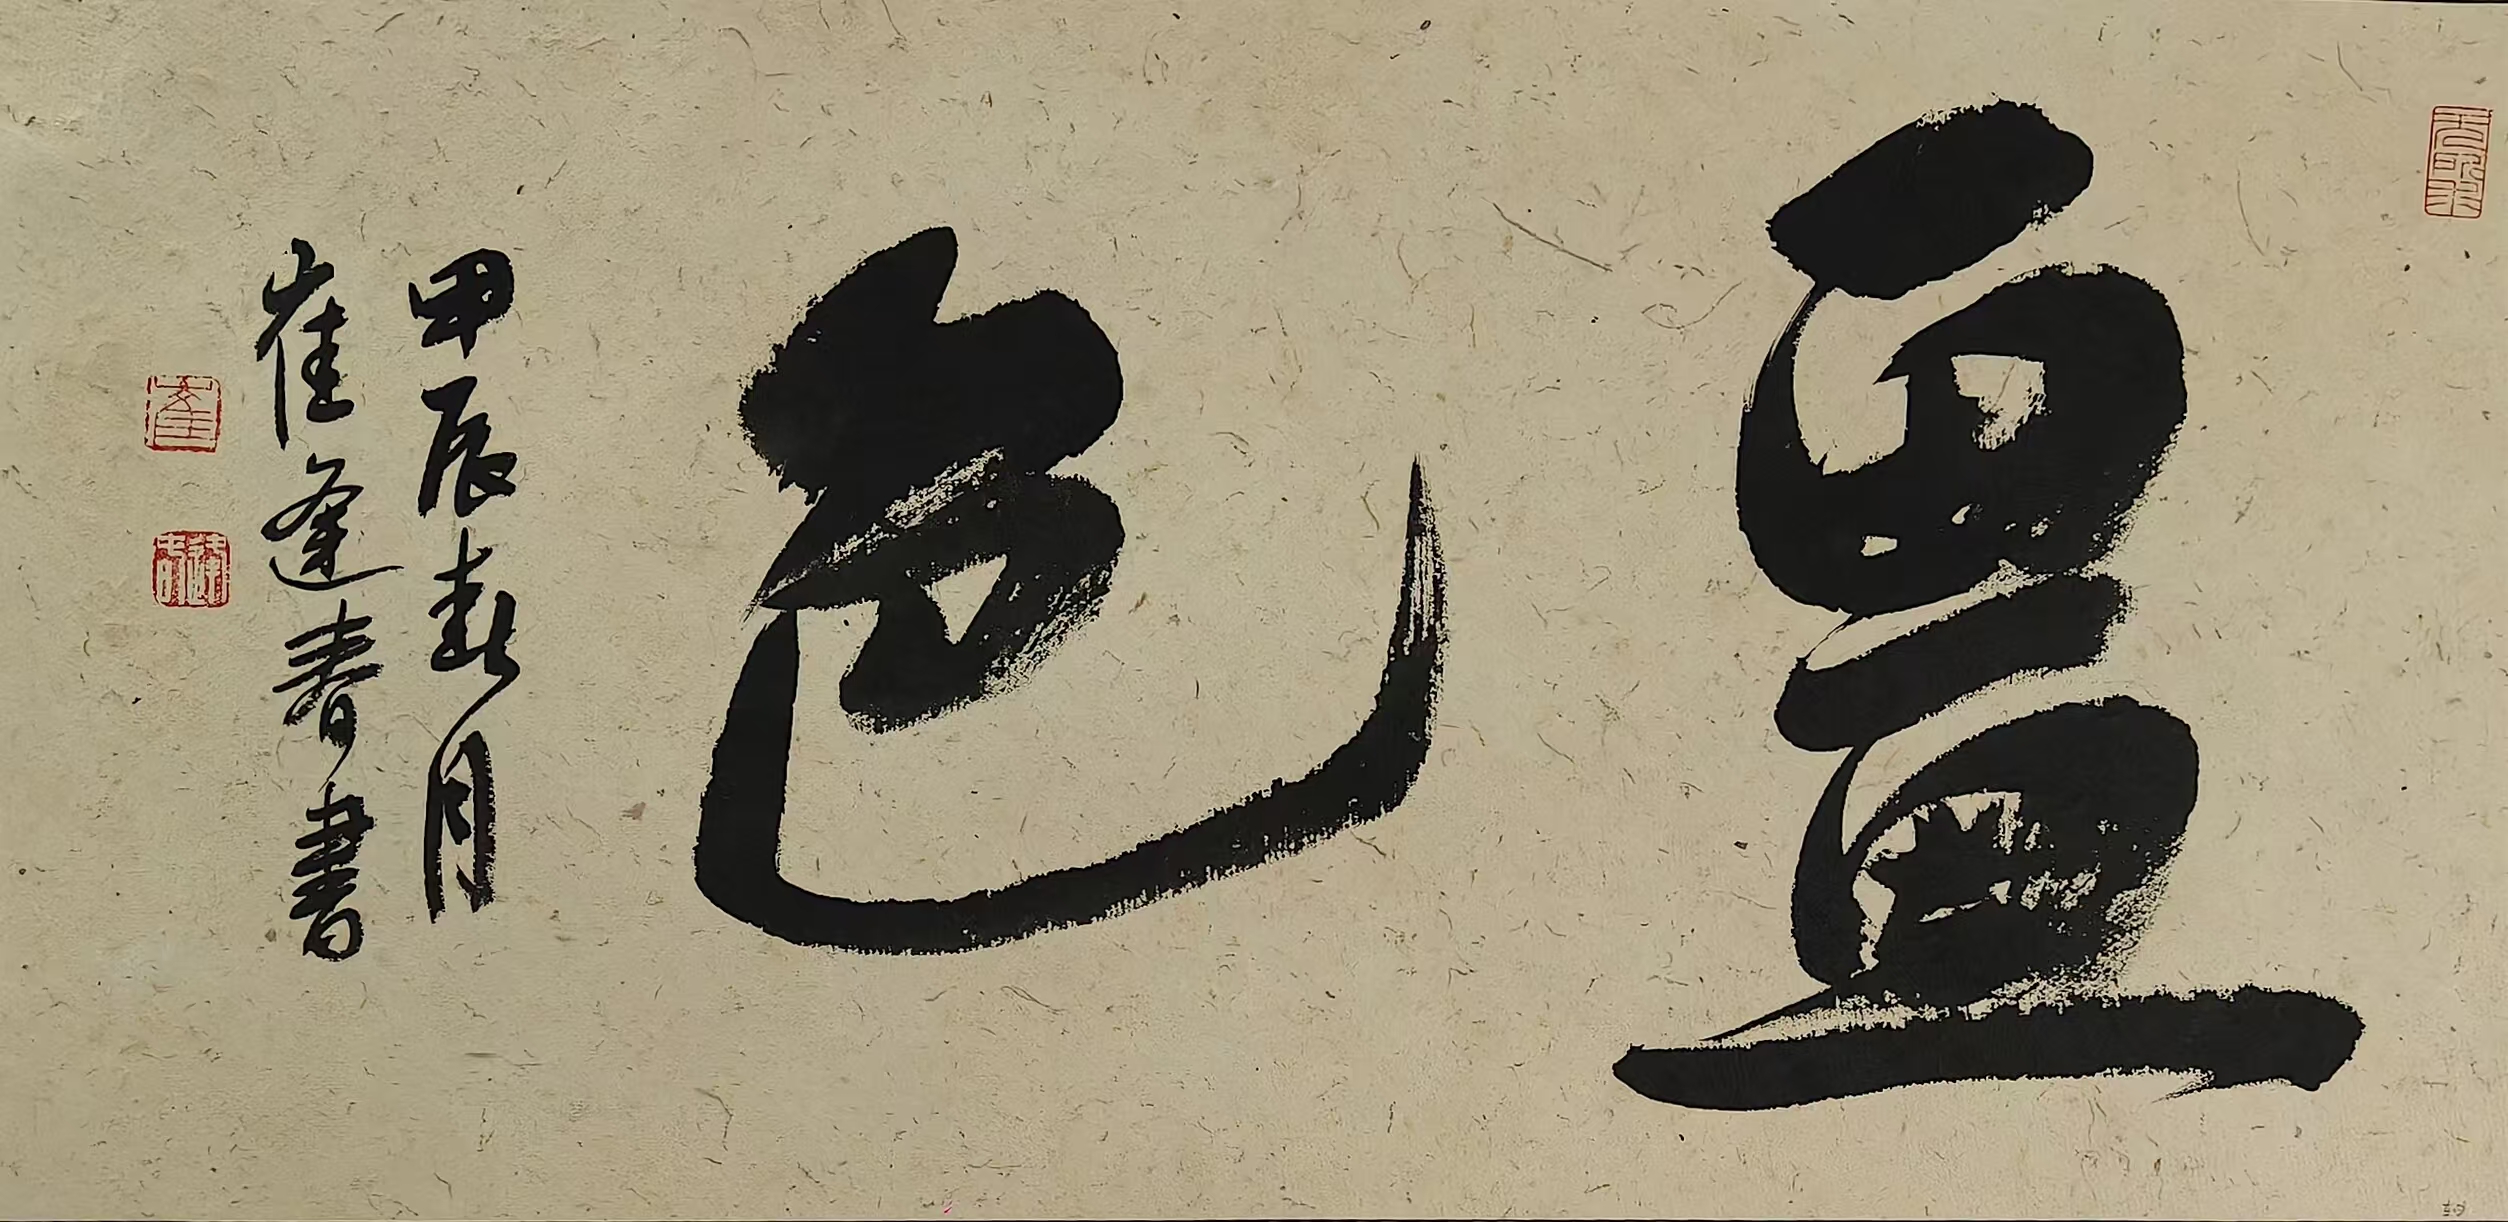 畺色
甲辰春月
崔逢春書